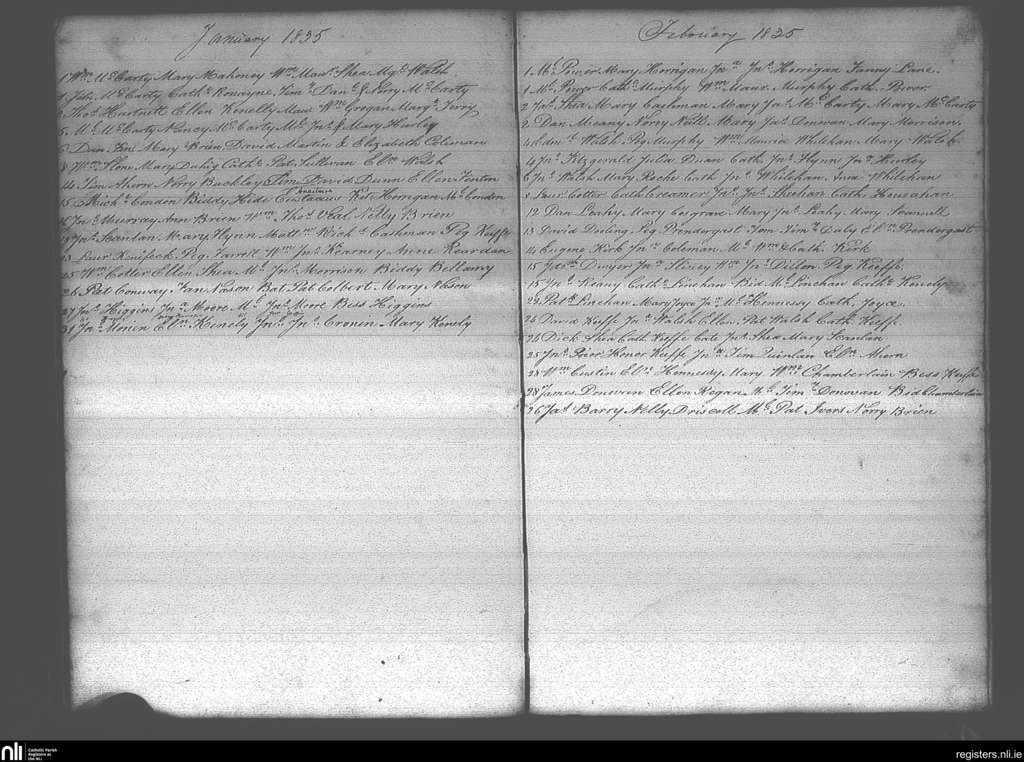 January 1835
1 Wm McCarty Mary Mahoney Wm Maur. Shea Mgt Walsh
1 McCarty Cathe Ronayne Tim Dan & Nory McCarty
2 Thos Hartnett Ellen Kenelly Maur Wm Grogan Margt Terry
5 Ml McCarty Nancy McCarty Ml Jno & Mary Hurley
6 Dan Fox Mary Brien David Martin & Elizabeth Coleman
8 Wm Mary Duhig Cathe Pat Sullivan Elln Walsh
14 Tim Ahern Norry Buckley Tim David Dunn Ellen Fenton
15 Michl Condon Biddy Hide Kit Horrigan Ml Condon
16 Jas Murray Ann Brien Wm Thos Veal Nelly Brien
18 Jas Scanlan Mary Flynn Matt Michl Cashman Peg Keiffe
23 Laur Kenifeck Peg Wm Jno Kearney Anne Reardan
25 Wm Cotter Ellen Shea Ml Jno Morrison Biddy Bellamy
26 Pat Conway Nason Bat Pat Colbert Mary Nason
27 Jno Higgins Jna Moore Ml Jno Moore Bess Higgins
31 Jno Elln Kenely Jno Jno Cronin Mary Kenely
February 1835
1 Ml Power Mary Horrigan Jna Jno Horrigan Fanny Lane
1 Ml Power Cathe Murphy Wm Maur. Murphy Cath. Power
2 Jno Shea Mary Cashman Mary Jas McCarty Mary McCarty
2 Dan Meany Nory Mary Jas Donovan Mary Morrison
4 Edm Walsh Peg Murphy Wm Maurice Whitehan Mary Walsh
4 Jno Fitzgerald Julia Duan Cath. Jno Flynn Jna Hurley
6 Jno Walsh Mary Roche Cath Jno Whitehan Whitehan
8 Laur Cotter Cath Creamer Jno Jno Sheehan Cath. Hanrahan
12 Dan Leahy Mary Cosgrave Mary Jno Leahy Mary
13 David Dooling Peg Prendergast Tom Timy Daly Elln Prendergast
14 Eugene Kirk Jna Coleman Ml Wm & Cath. Kirk
15 Dwyer Jna Sliney Wm Jas Dillon Peg Keiffe
15 Jno Keany Cathe Linehan Bid Ml Linehan Cathe Kenely
22 Patk Linehan Mary Joyce Jno Ml Hennessy Cath. Joyce
24 David Keiffe Jna Walsh Ellen Pat Walsh Cath. Keiffe
24 Dick Shea Cath Keiffe Cate Jno Shea Mary Scanlan
25 Jno Prior Honor Keiffe Jna Tim Quinlan Elln Ahern
28 Wm Custin Elln Hennessy Mary Wm Chamberlain Bess Keiffe
28 James Donovan Ellen Regan Ml Timy Donovan Bid Chamberlain
26 Jas Barry Nelly Driscoll Ml Pat Ivers Norry Brien
nli
Catholic Parish
Registers at
the NLI
registers.nli.ie